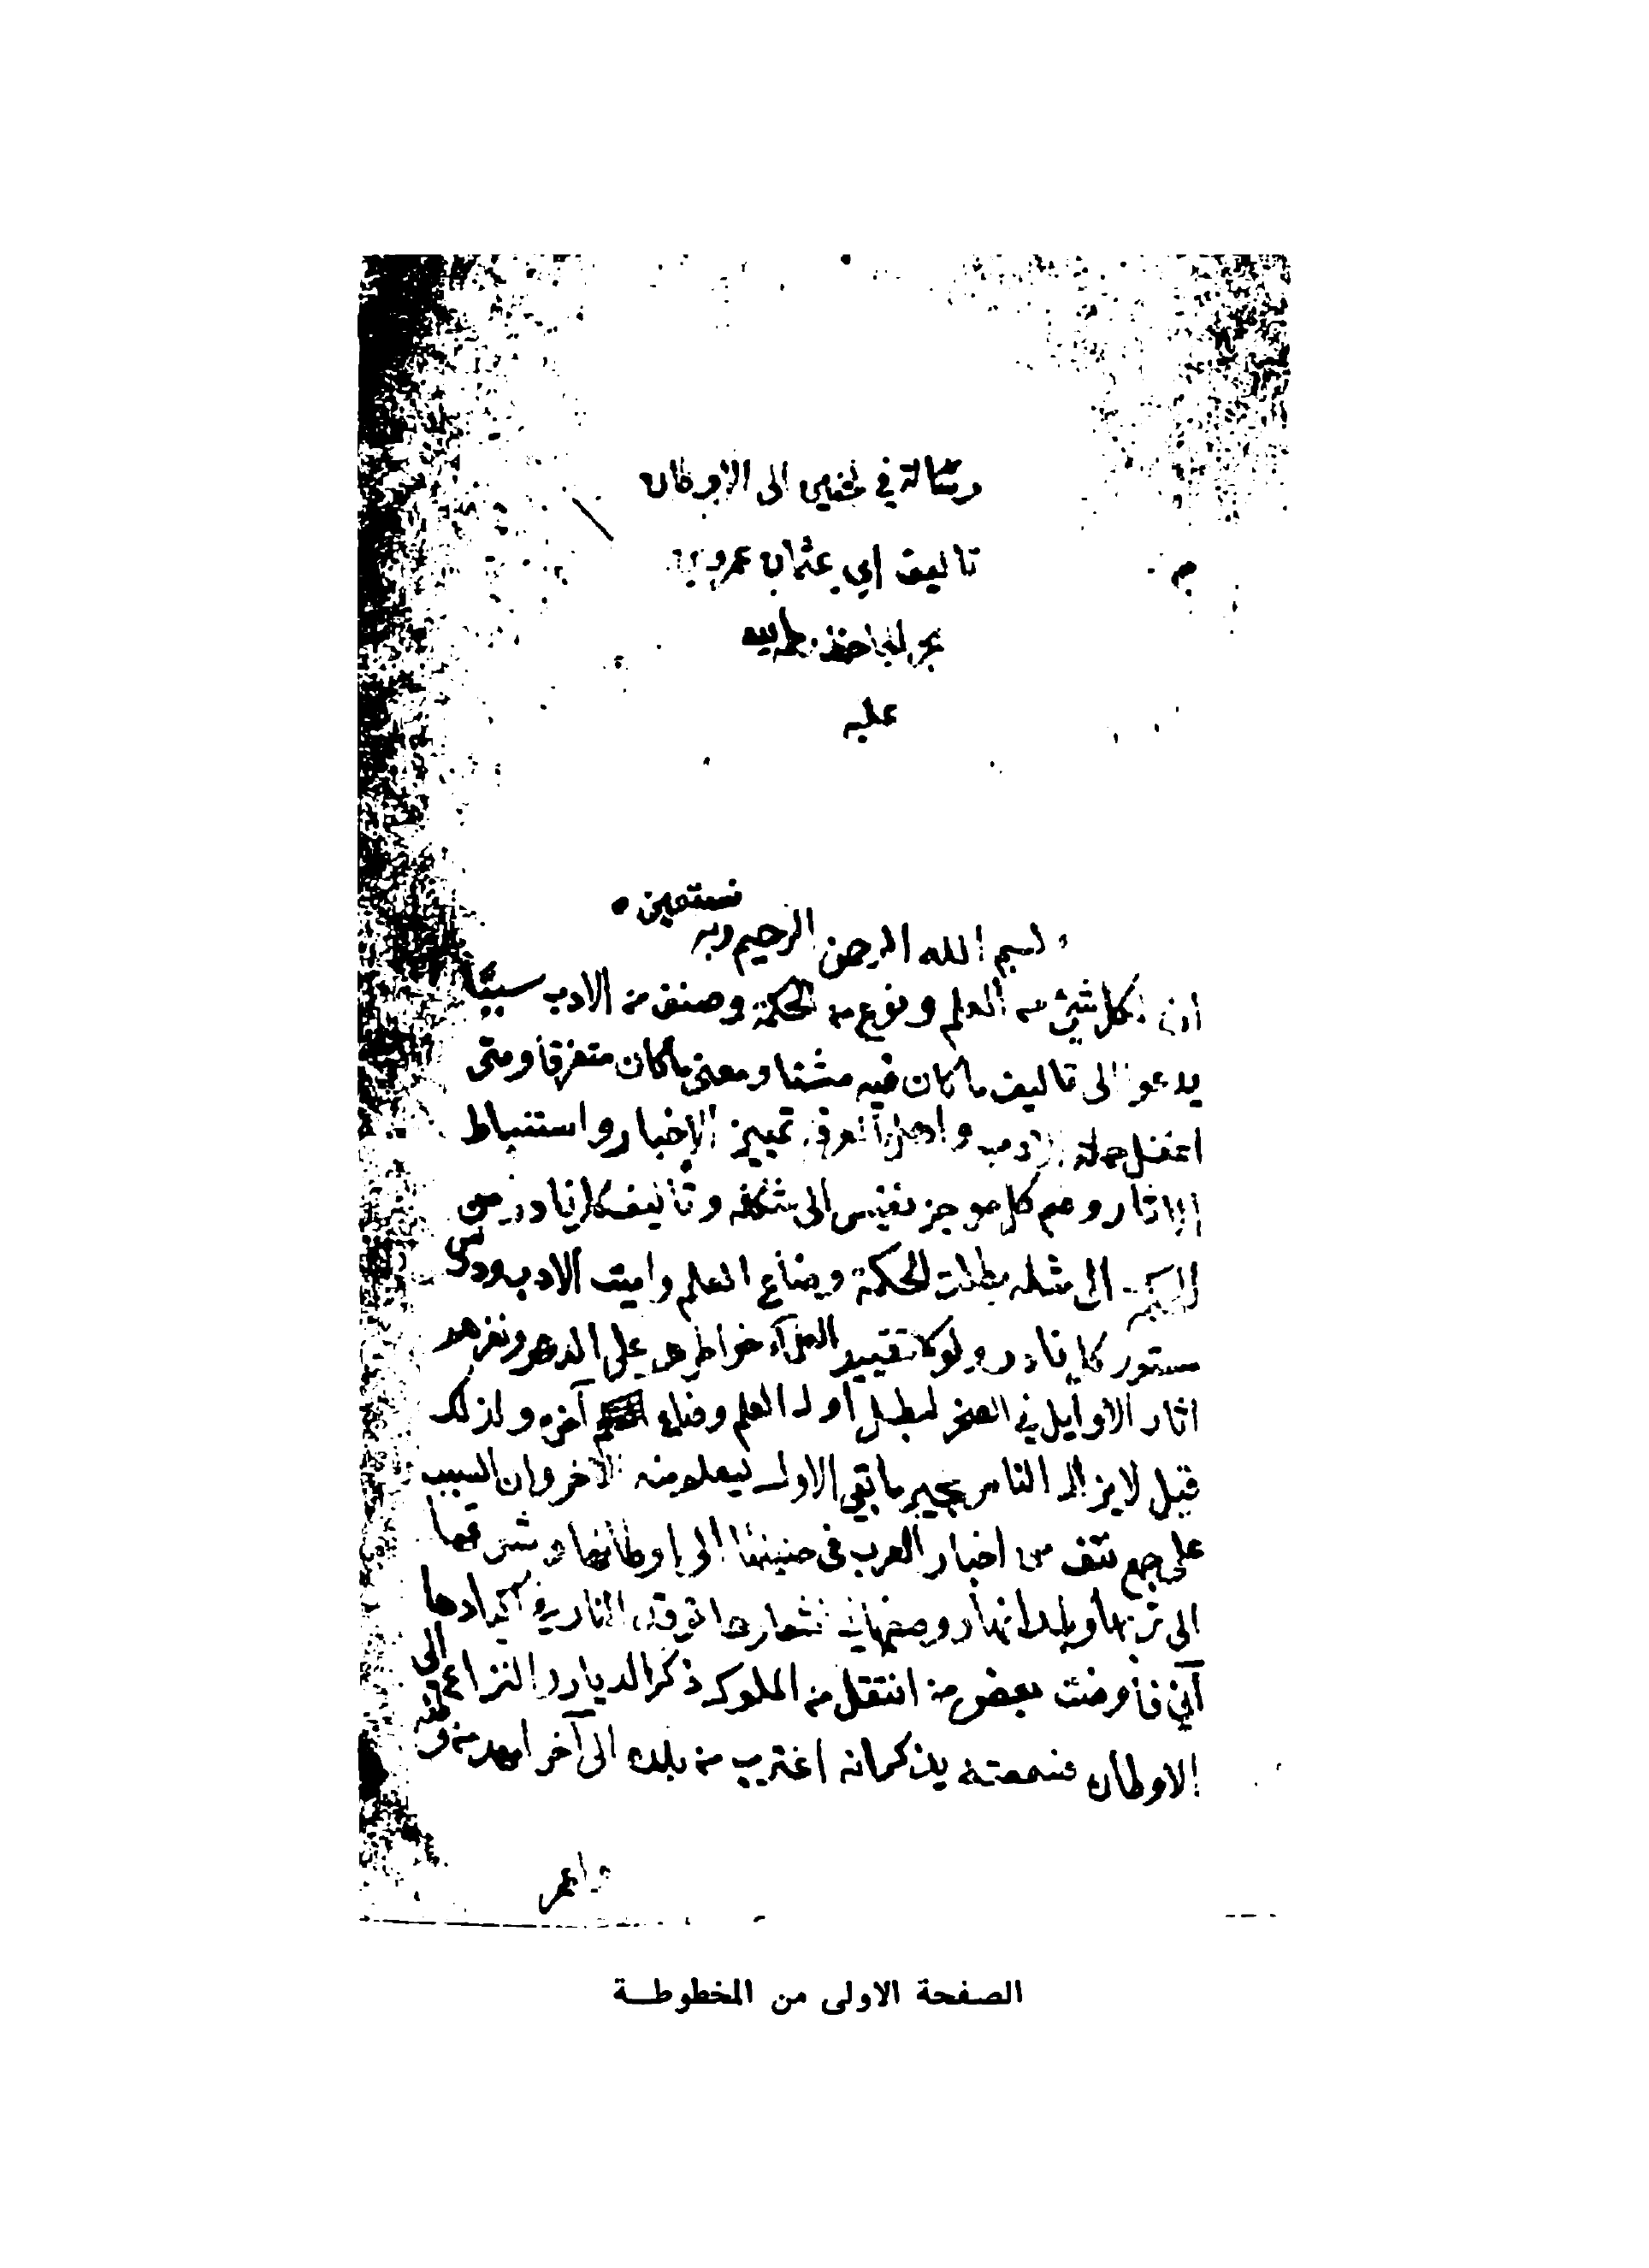 رسالة في الحنين الى الاوطان
تاليف ابي عثمان عمرو بن
بحر الجاحظ رحمة الله
عليه
بسم الله الرحمن الرحيم وبه نستعين
ان لكل شئ من العلم ونوع من الحكمة وصنف من الادب سببًا
يدعوا الى تاليف ما كان فيه مشتتا ومعنى ما كان متفرقا ومتى
اغفل حملة الادب واهل المعرفة تمييز الاخبار واستنباط
الاثار وضم كل موجز نفيس الى شكله وتأليف كل نادر من
الحكمة الى مثله بطلت الحكمة وضاع العلم واميت الادب ودرس
مستور كل نادر ولولا تقييد العلمآء خواطرهم على الدهر ونقرهم
اثار الأوايل في الصخر لبطل أول العلم وضاع آخره ولذلك
قيل لا يزال الناس بخير ما بقي الاول ليعلم منه الآخر وان السبب
على جمع نتف من اخبار العرب في حنينها الى اوطانها وشوقها
الى تربها وبلدانها ووصفها في اشعارها توقد النار في اكبادها
آني فاوضت بعض من انتقل من الملوك ذكر الديار والنزاع الى
الاوطان فسمعته يذكر انه اغترب من بلده الى آخر امهد من وطنه
واعمر
الصفحة الاولى من المخطوطـة